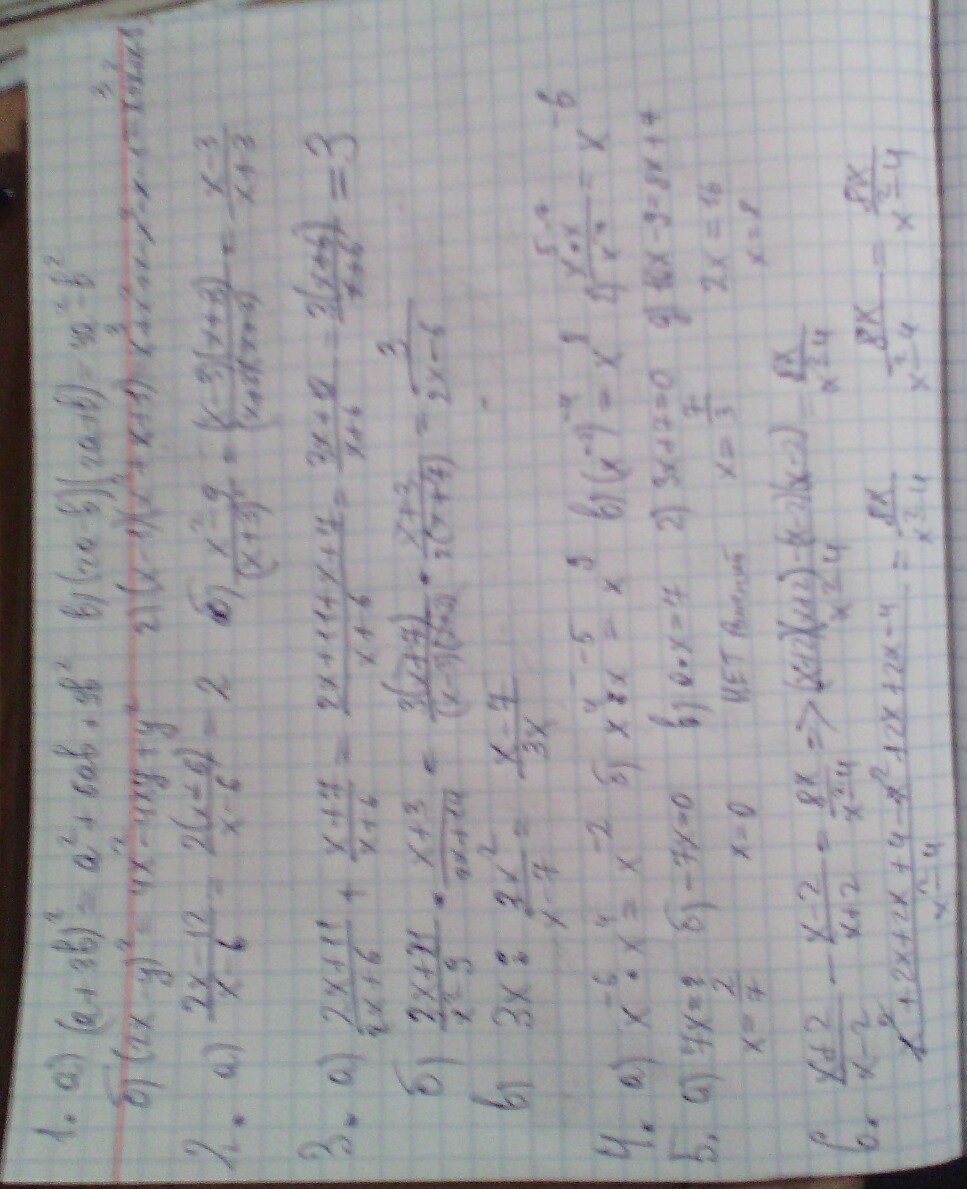 1. а) (a+3b)² = a²+6ab+9b² в) (2a-b)(2a+b)=4a²-b²
б) (2x-y)² = 4x²-4xy+y² 2) (x-1)(x²+x+1)=
2. а) (2x-12)/(x-6) = 2(x-6)/(x-6) = 2 б) (x²-9)/(x+3)² = (x-3)(x+3)/(x+3)(x+3) = (x-3)/(x+3)
3. а) (2x+11)/(x+6) + (x+7)/(x+6) = (2x+11+x+7)/(x+6) = (3x+18)/(x+6) = 3(x+6)/(x+6) = 3
б) (2x+21)/(x²-9) • (x+3)/(2x+14) = 3(x+7)/(x-3)(x+3) • (x+3)/2(x+7) = 3/(2x-6)
в) 3x : 3x²/(x-7) = (x-7)/3x
4. а) x⁻⁶ • x⁴ = x⁻² б) x⁴ : x⁻⁵ = x⁹ в) (x⁻²)⁻⁴ = x⁸ 2) = x⁻⁶
5. а) 7x=2 б) -7x=0 в) 0•x=7 2) 3x+7=0 g) 10x-9=8x+7
x=2/7 x=0 НЕТ x=7/3 2x=16
x=8
6. (x+2)/(x-2) - (x-2)/(x+2) = 8x/(x²-4) => ((x+2)(x+2)-(x-2)(x-2))/(x²-4) = 8x/(x²-4)
(x²+2x+2x+4-x²+2x+2x-4)/(x²-4) = 8x/(x²-4) 8x/(x²-4) = 8x/(x²-4)